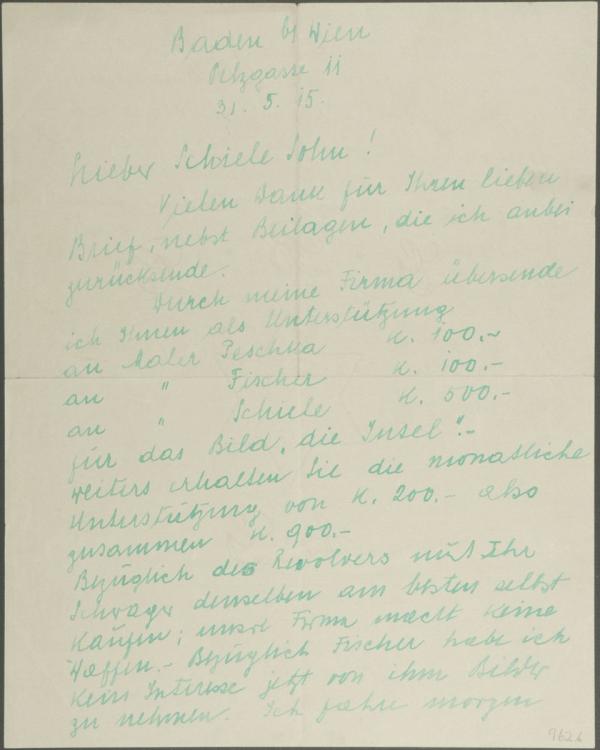 Baden b/ Wien
Pelzgasse 11
31. 5. 15.
Lieber Schiele Sohn!
Vielen Dank für Ihren lieben
Brief, nebst Beilagen, die ich anbei
zurücksende.
Durch meine Firma übersende
ich Ihnen als Unterstützung
an Maler Peschka K. 100.-
an " Fischer K. 100.-
an " Schiele K. 500.-
für das Bild „die Insel".-
weiters erhalten Sie die monatliche
Unterstützung von K. 200.- also
zusammen K. 900.-
Bezüglich des Revolvers muß Ihr
Schwager denselben am besten selbst
kaufen; unsre Firma macht keine
Waffen.- Bezüglich Fischer habe ich
kein Interesse jetzt von ihm Bilder
zu nehmen. Ich fahre morgen
962 b